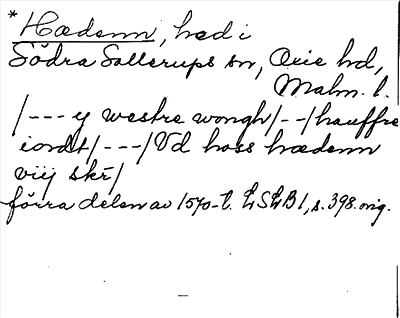 * Hædenn, hed i
Södra Sallerups sn, Oxie hd,
Malm. l.
/--- y westre wongh/--/hauffre
iordt/---/Vd hoss hædenn
viij skr/
förra delen av 1570-t. LSLB 1, s. 398. orig.